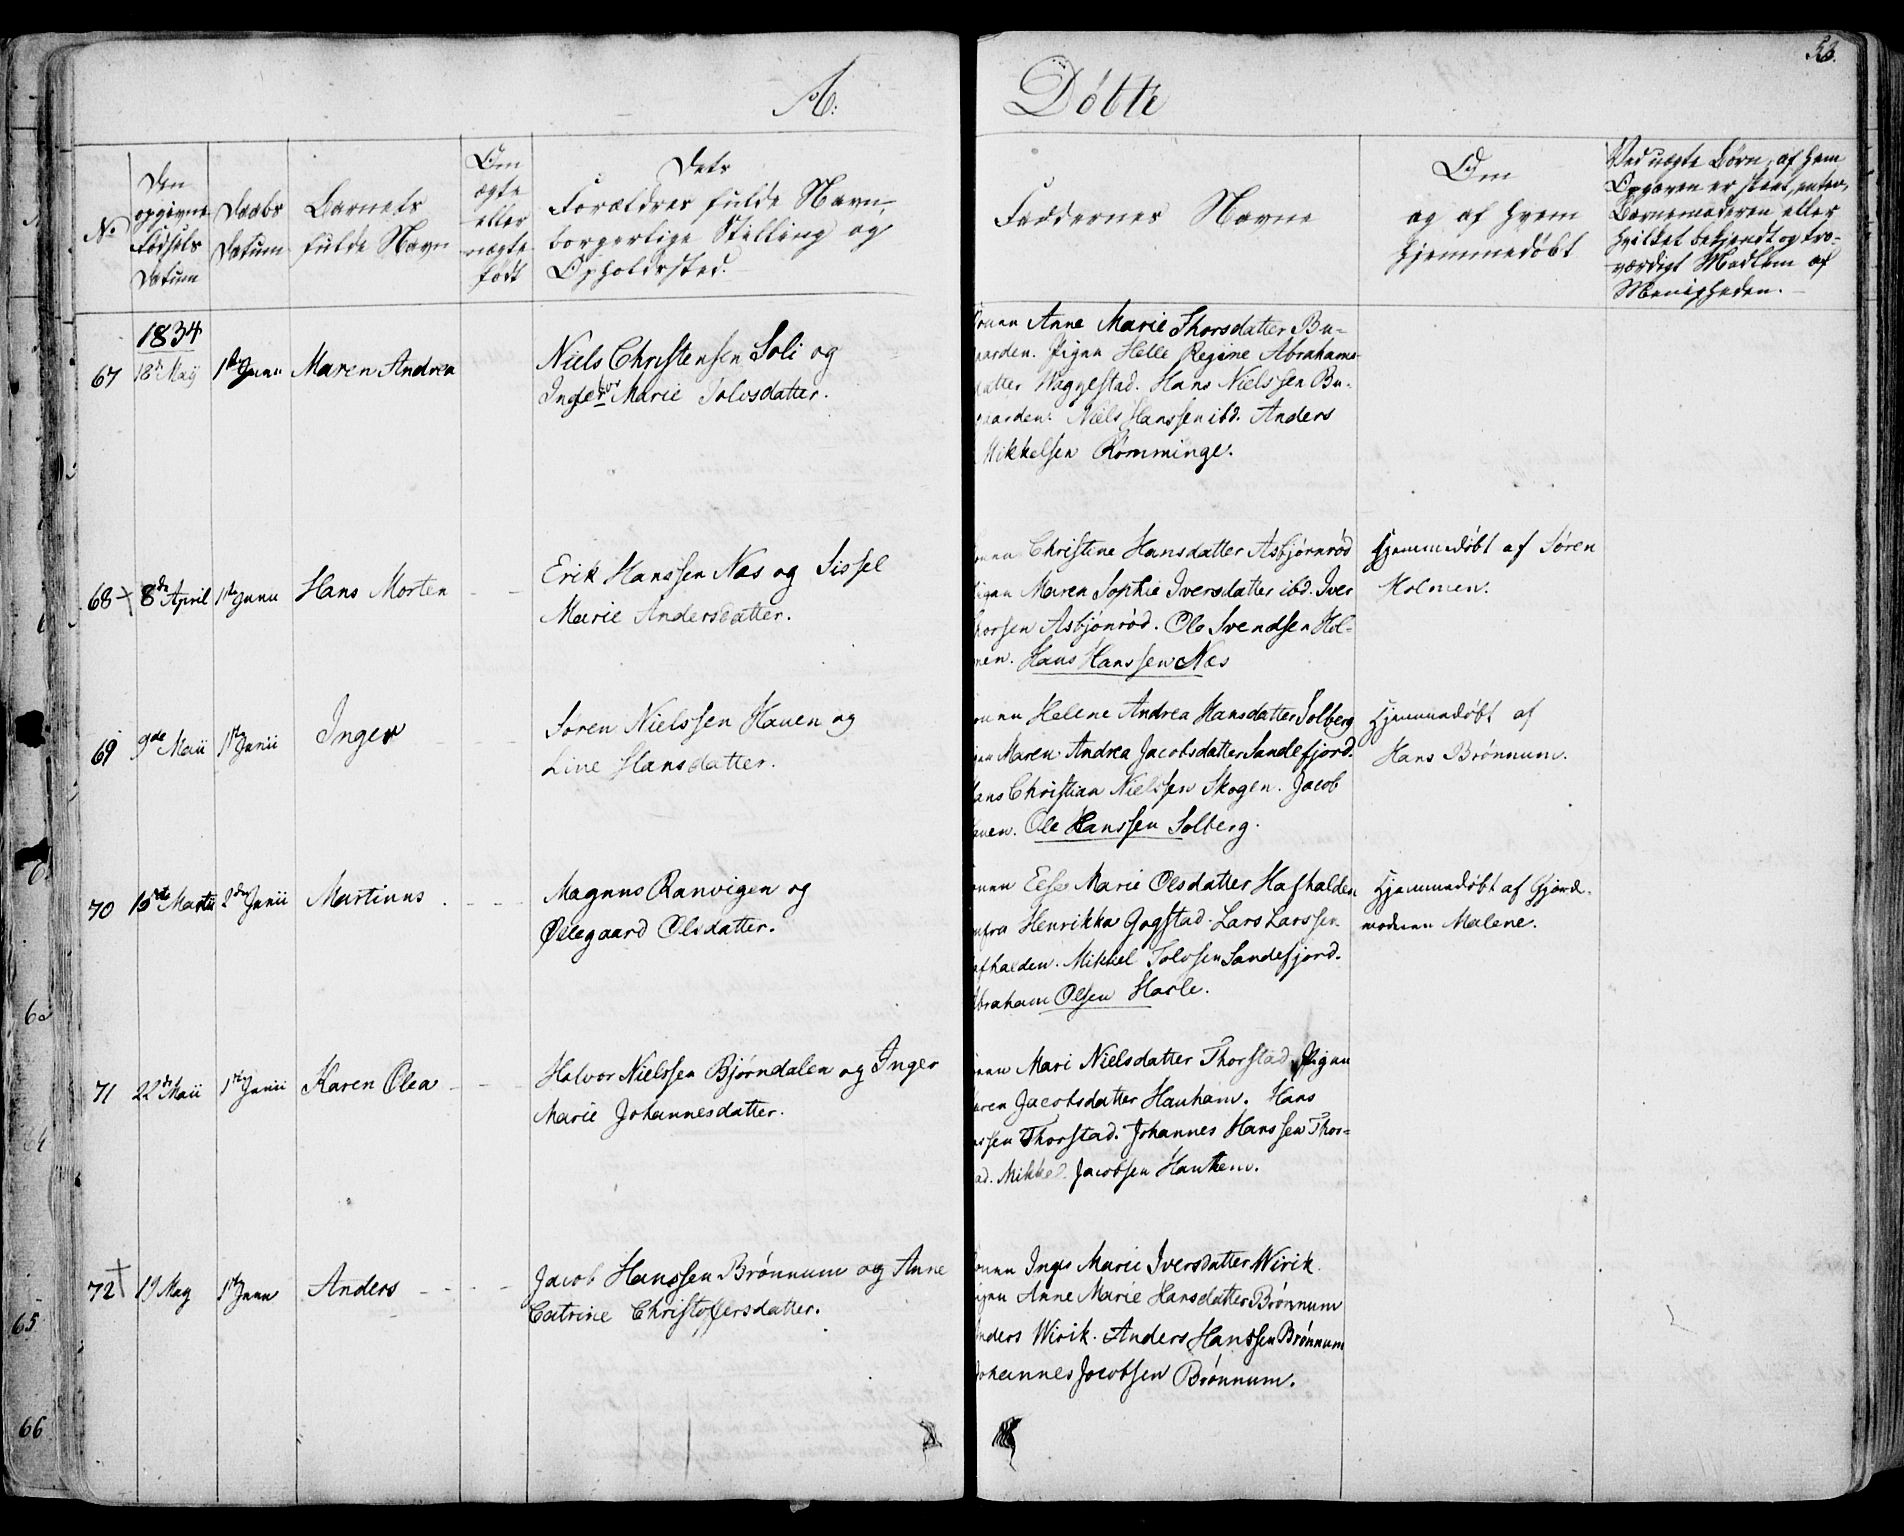 A: Døbte
53.
No
Den opgivne Fødsels Datum
Daabs Datum
Barnets fulde Navn
Om ægte eller uægte født
Dets Forældres fulde Navn, borgerlige Stilling og Opholdssted.
Faddernes Navne
Om og af hvem hjemmedøbt
Ved uægte Børn, af hvem Opgaven er skeet, enten Barnemoderen eller hvilket bekjendt og troværdigt Medlem af Menigheden.
1834
67 18de Maij 1ste Junii Maren Andrea
Niels Christensen Soli og
Inger Marie Tolvsdatter.
Anne Marie Thorsdatter Bu-
aarden. Pigen Helle Regine Abrahams-
datter Waggestad. Hans Nielssen Bu-
gaarden. Niels Hanssen ibd. Anders
Mikkelsen Romminge.
68 8de April 1ste Junii Hans Morten
Erik Hanssen Næs og Sissel
Marie Andersdatter.
Christine Hansdatter Asbjørnrød
Maren Sophie Iversdatter ibd. Iver
Thorsen Asbjønrød. Ole Svendsen Hol-
men. Hans Hanssen Næs
Hjemmedøbt af Søren
Holmen.
69 9de Maii 1ste Junii Inger
Søren Nielssen Hauen og
Line Hansdatter.
Helene Andrea Hansdatter Solberg
Maren Andrea Jacobsdatter Sandefjord.
Hans Christian Nielssen Skogen. Jacob
Hauen. Ole Hanssen Solberg.
Hjemmedøbt af
Hans Brønnum.
70 15de Martii Junii Martinus
Magnus Ranvigen og
Øllegaard Olsdatter.
Else Marie Olsdatter Hafhalden
Henrikka Gogstad. Lars Larssen
Hafhalden. Mikkel Tolvsen Sandefjord.
Abraham Olsen Hasle.
Hjemmedøbt af Gjord-
moderen Malene.
71 22de Maii 1ste Junii Karen Olea
Halvor Nielssen Bjørndalen og Inger
Marie Johannesdatter.
Mari Nielsdatter Thorstad. Pigen
Jacobsdatter Hauham. Hans
Thorstad. Johannes Hanssen Thor-
ad. Mikkel Jacobsen Haukem.
72 19 May 1ste Junii Anders
Jacob Hanssen Brønnum og Anne
Catrine Christoffersdatter.
Inger Marie Iversdatter Wirik.
Anne Marie Hansdatter Brønnum
Anders Wirik. Anders Hanssen Brønnum
Johannes Jacobsen Brønnum.
65
66